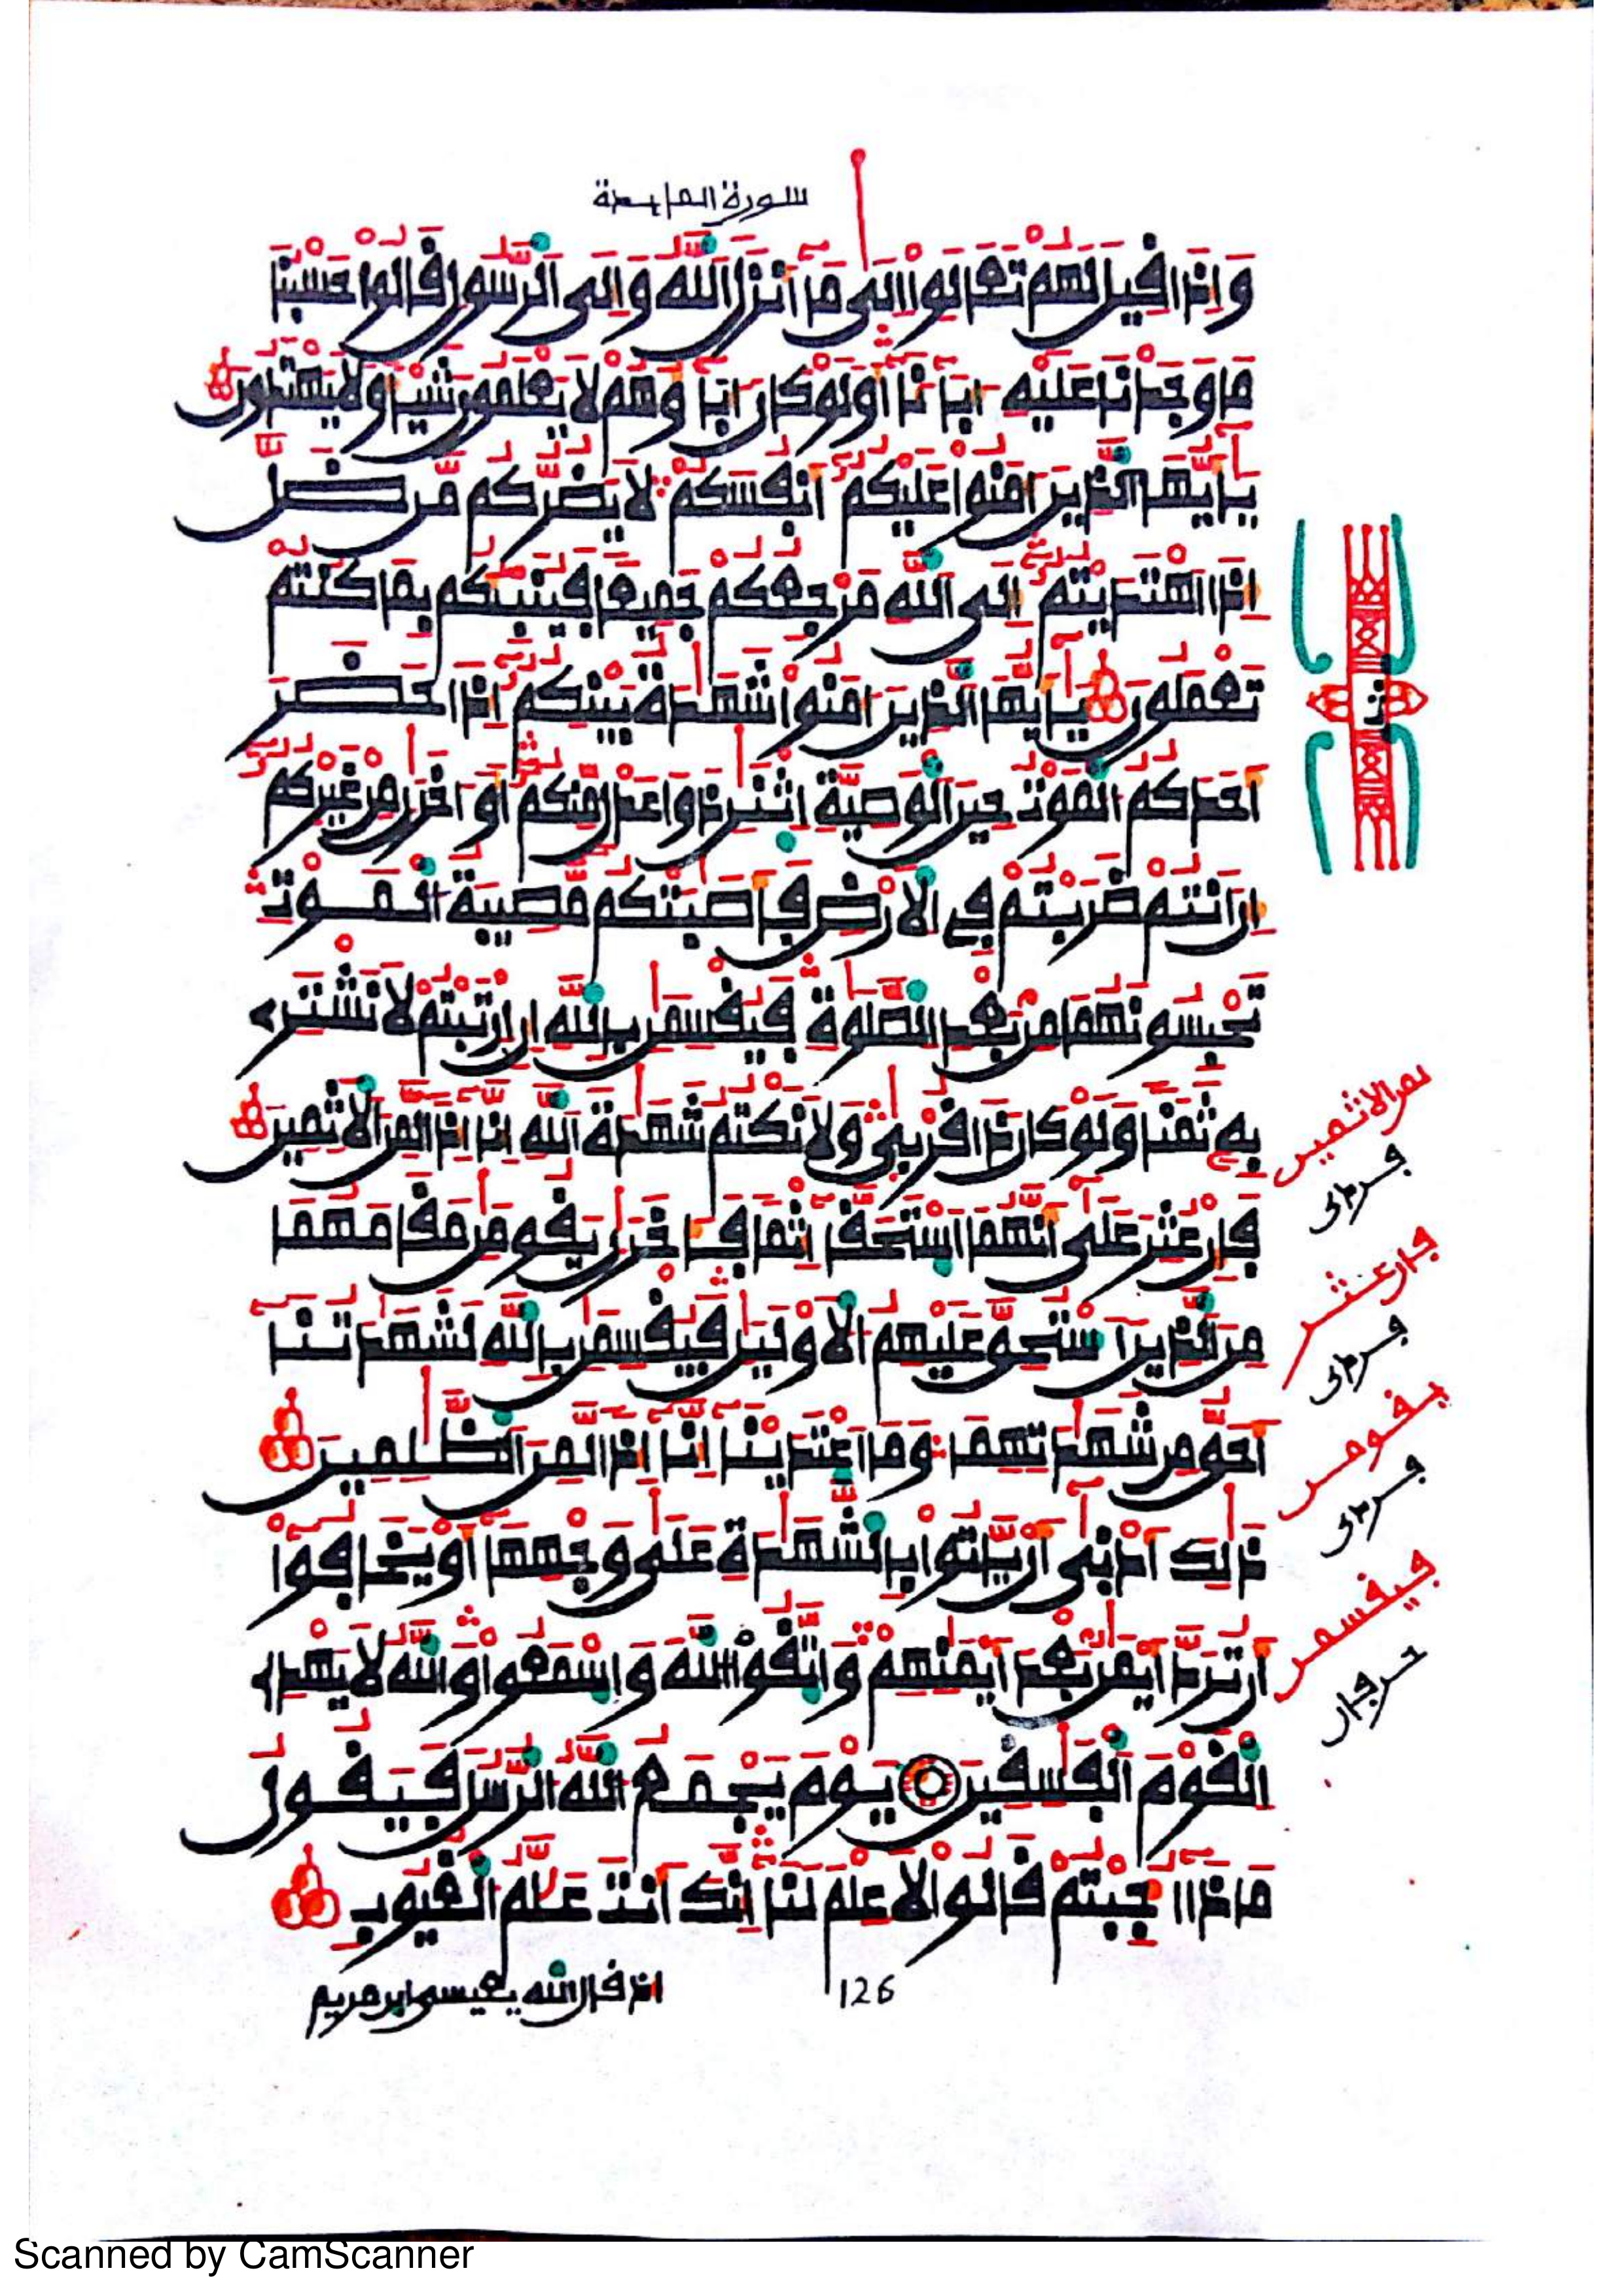 سورة المايدة
وَإِذَا قِيلَ لَهُمْ تَعَالَوِاْ اِلَىٰ مَآ أَنزَلَ اَللَّهُ وَإِلَى اَلرَّسُولِ قَالُواْ حَسْبُنَا
مَا وَجَدْنَا عَلَيْهِ ءَابَآءَنَآ أَوَلَوْ كَانَ ءَابَآؤُهُمْ لَا يَعْلَمُونَ شَيْـًٔا وَلَا يَهْتَدُونَ
يَـٰٓأَيُّهَا اَلَّذِينَ ءَامَنُواْ عَلَيْكُمُۥٓ أَنفُسَكُمْ لَا يَضُرُّكُم مَّن ضَلَّ
إِذَا اَهْتَدَيْتُمُۥٓ إِلَى اَللَّهِ مَرْجِعُكُمْ جَمِيعًا فَيُنَبِّئُكُم بِمَا كُنتُمْ
تَعْمَلُونَ يَـٰٓأَيُّهَا اَلَّذِينَ ءَامَنُواْ شَهَـٰدَةُ بَيْنِكُمُۥٓ إِذَا حَضَرَ
أَحَدَكُمُ اُلْمَوْتُ حِينَ اَلْوَصِيَّةِ اِثْنَـٰنِ ذَوَا عَدْلٍ مِّنكُمُۥٓ أَوَ اٰخَرَانِ مِنْ غَيْرِكُمُۥٓ
إِنَ اَنتُمْ ضَرَبْتُمْ فِى اِلَارْضِ فَأَصَـٰبَتْكُم مُّصِيبَةُ اُلْمَوْتِ
تَحْبِسُونَهُمَا مِنۢ بَعْدِ اِلصَّلَوٰةِ فَيُقْسِمَـٰنِ بِاللَّهِ إِنِ اِرْتَبْتُمْ لَا نَشْتَرِى
بِهِۦ ثَمَنًا وَلَوْ كَانَ ذَا قُرْبَىٰ وَلَا نَكْتُمُ شَهَـٰدَةَ اَللَّهِ إِنَّآ إِذًا لَّمِنَ اَلَاثِمِينَ
فَإِنْ عُثِرَ عَلَىٰٓ أَنَّهُمَا اَسْتَحَقَّآ إِثْمًا فَـَٔاخَرَانِ يَقُومَـٰنِ مَقَامَهُمَا
مِنَ اَلَّذِينَ اَسْتُحِقَّ عَلَيْهِمُ اُلَاوْلَيَـٰنِ فَيُقْسِمَـٰنِ بِاللَّهِ لَشَهَـٰدَتُنَآ
أَحَقُّ مِن شَهَـٰدَتِهِمَا وَمَا اَعْتَدَيْنَآ إِنَّآ إِذًا لَّمِنَ اَلظَّـٰلِمِينَ
ذَٰلِكَ أَدْنَىٰٓ أَنْ يَّاتُواْ بِالشَّهَـٰدَةِ عَلَىٰ وَجْهِهَآ أَوْ يَخَافُوٓاْ
أَن تُرَدَّ أَيْمَـٰنٌۢ بَعْدَ أَيْمَـٰنِهِمْ وَاتَّقُواْ اُللَّهَ وَاسْمَعُواْ وَاللَّهُ لَا يَهْدِى
اِلْقَوْمَ اَلْفَـٰسِقِينَ يَوْمَ يَجْمَعُ اُللَّهُ اُلرُّسُلَ فَيَقُولُ
مَاذَآ أُجِبْتُمْ قَالُواْ لَا عِلْمَ لَنَآ إِنَّكَ أَنتَ عَلَّـٰمُ اُلْغُيُوبِ
126
اذ قال الله يعيسى ابن مريم
ثا
لمن الاثمين
فإن عثر
يقومن
فيقسمن
Scanned by CamScanner